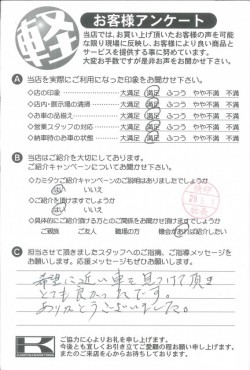 軽
お客様アンケート
当店では、お買い上げ頂いたお客様の声を可能
な限り現場に反映し、お客様により良い商品と
サービスを提供する事に努めています。
大変お手数ですが是非お声をお聞かせ下さい。
A 当店を実際にご利用になった印象をお聞かせ下さい。
◇店の印象 大満足 満足 ふつう やや不満 不満
◇店内・展示場の清掃 大満足 満足 ふつう やや不満 不満
◇お車の品揃え 大満足 満足 ふつう やや不満 不満
◇営業スタッフの対応 大満足 満足 ふつう やや不満 不満
◇納車時のお車の状態 大満足 満足 ふつう やや不満 不満
B 当店はご紹介を大切にしております。
ご紹介キャンペーンについてお聞かせ下さい。
◇カミタケご紹介キャンペーンのご説明はありましたでしょうか
はい いいえ
◇ご紹介を頂けますでしょうか
はい いいえ
◇具体的にご紹介頂ける方とのご関係をお聞かせ頂けますでしょうか
ご親族 ご友人 職場の方 機会があれば紹介したい
C 担当させて頂きましたスタッフへのご指摘、ご指導メッセージを
お願いします。応援メッセージもぜひお願いします。
希望に近い車を見つけて頂き
とても良かったです。
ありがとうございました。
K
ご協力に心よりお礼を申し上げます。
今後とも宜しくお引き立てご愛顧の程お願い申し上げます。
またのご来店を心からお待ちしております。